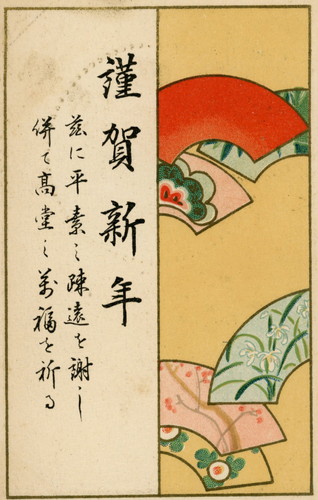 謹賀新年
茲に平素之疎遠を謝し
併て高堂之萬福を祈る